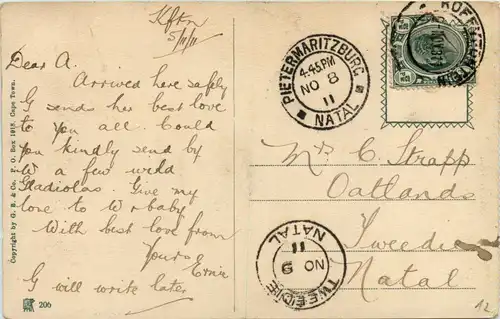 Kftn
5/11/11
Dear A.
Arrived here safely
G sends her best love
to you all. Could
you kindly send by
W a few wild
Gladiolas. Give my
love to W & baby
With best love from
Yours
Ernie
G will write later
Copyright by G. B. & Co. P. O. Box 1018. Cape Town.
206
PIETERMARITZBURG
4.45PM
NO 8
11
NATAL
KOFFYFONTEIN
Mrs C. Strapp
Oatlands
Tweedie
Natal
TWEEDIE
NO 9
11
NATAL
12